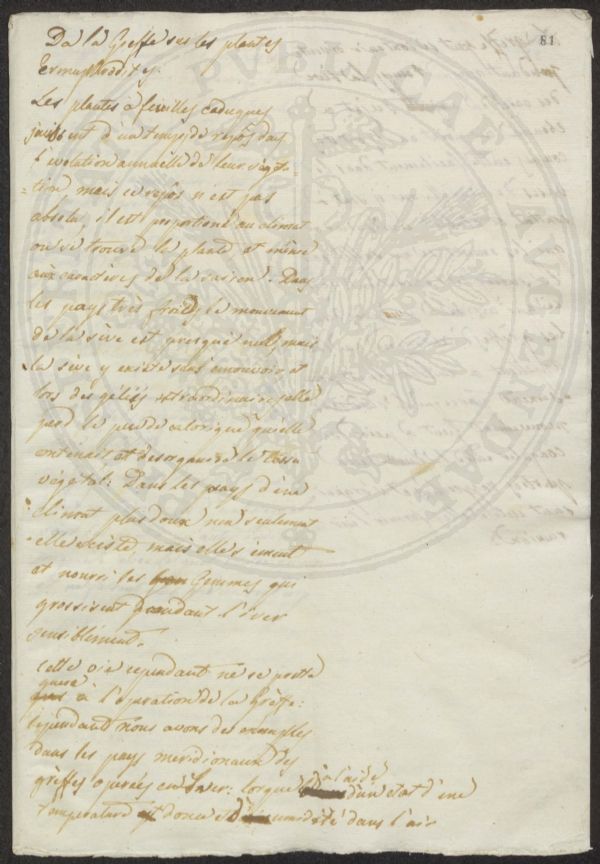 81
De la Greffe sur les plantes
Ermaphroddites.
Les plantes à feuilles caduques
juissent d'un temps de repos dans
l'evolation annuelle de leur végéta-
-tion mais ce repos n'est pas
absolu, il est proportioné au climat
ou se trouve la plante et même
aux caracteres de la saison. Dans
les pays très froids le mouvement
de la sève est presque nul, mais
la sève y existe sans emouvoir et
lors des gélées extraordinaires elle
perd le peu de calorique qu'elle
contenait et desorganise le tissu
végétal: Dans les pays d'un
climat plus doux non seulement
elle existe, mais elle s'ement
et nourri les gemmes qui
grossissent pendant l'iver
sensiblement.
Cette vie cependant ne se prette
guere à l'opération de la Greffe:
cependant nous avons des exemples
dans les pays meridionaux des
grèffes operées en iver: lorque à l'aide d'un etat d'une
température douce et d'umidité dans l'air
PVBLICAE
AVGENDAE